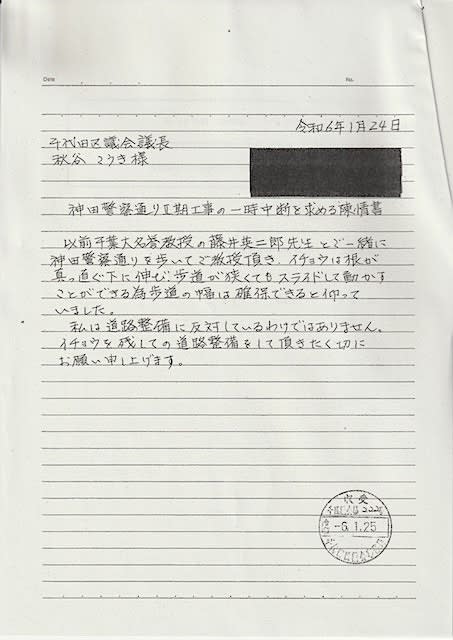 Date
No.
令和6年1月24日
千代田区議会議長
秋谷 こうき様
神田警察通りⅡ期工事の一時中断を求める陳情書
以前千葉大名誉教授の藤井英二郎先生とご一緒に
神田警察通りを歩いてご教授頂き、イチョウは根が
真っ直ぐ下に伸び歩道が狭くてもスライドして動かす
ことができる為歩道の幅は確保できると仰って
いました。
私は道路整備に反対しているわけではありません。
イチョウを残しての道路整備をして頂きたく切に
お願い申し上げます。
-6.1.25